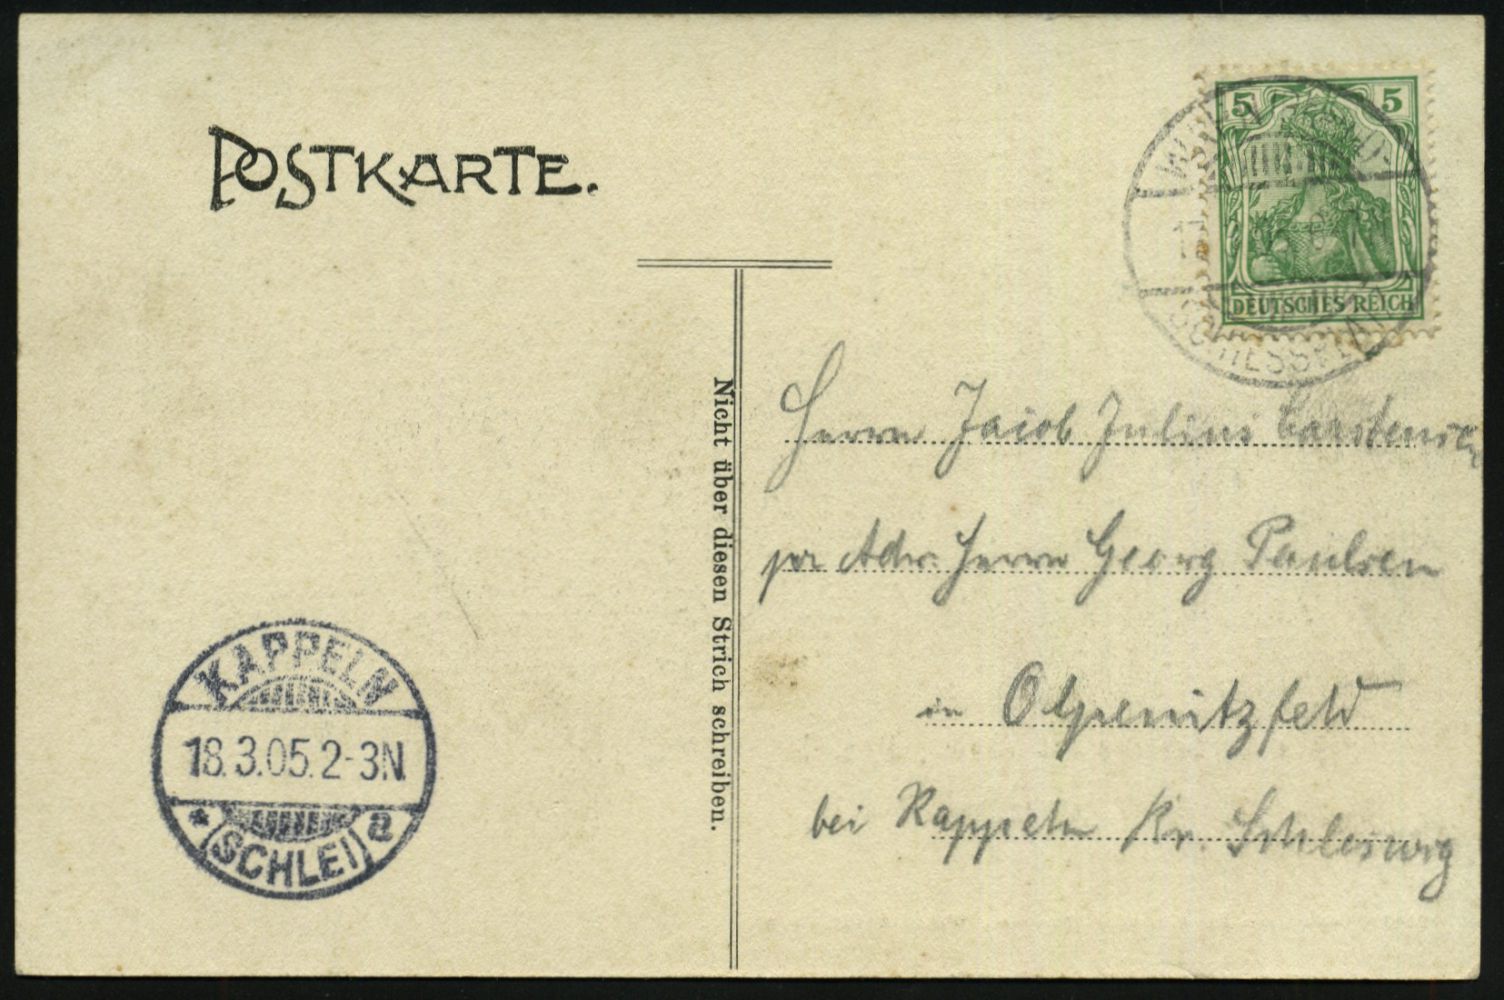 POSTKARTE.
5 5
DEUTSCHES REICH
SCHIESSPLATZ
Nicht über diesen Strich schreiben.
Herrn Jacob Julius Carstensen
pr Adr. Herrn Georg Paulsen
in Olpenitzfeld
bei Kappeln Kr. Schleswig
KAPPELN
18.3.05.2-3N
* (SCHLEI) a